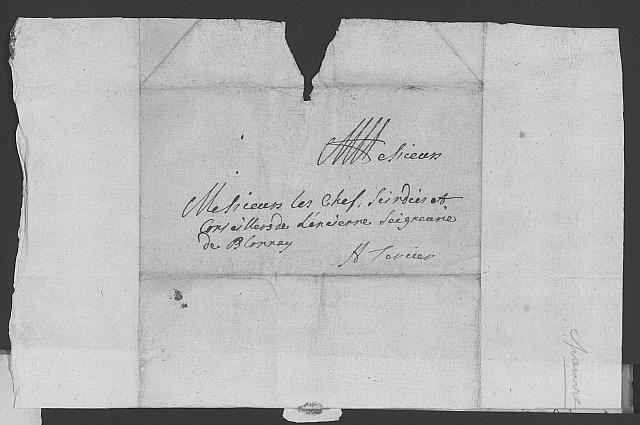 Messieurs
Messieurs les Chef, Scindics et
Conseillers de L'encienne Seigneurie
de Blonney
A